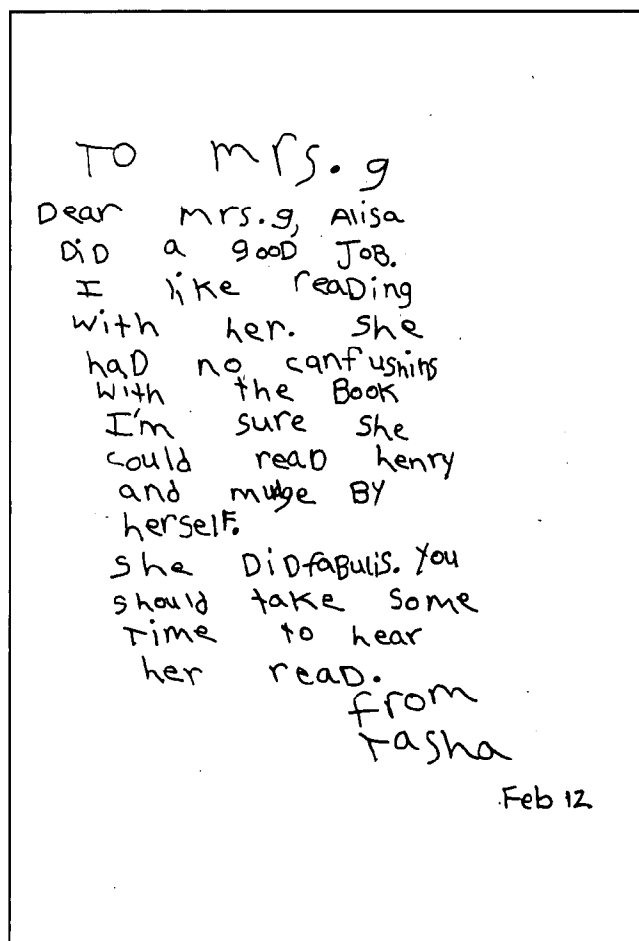 TO mrs. g
Dear mrs. g, Alisa
DiD a gooD JoB.
I like reaDing
with her. She
haD no canfushins
with the Book
I'm sure she
could reaD henry
and mudge BY
herselF.
She DiD faBulis. You
should take some
Time to hear
her reaD.
from
Tasha
Feb 12